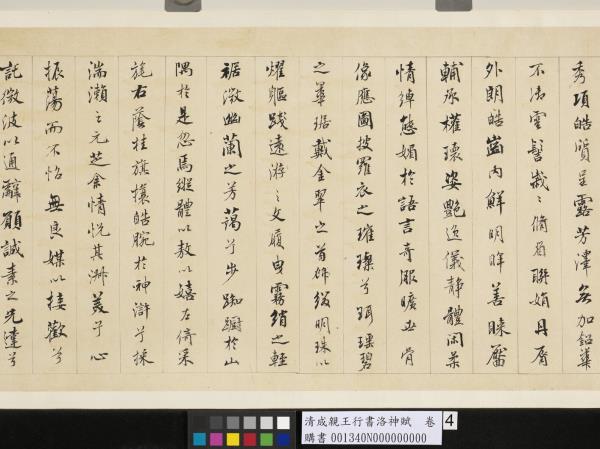 秀項皓質呈露芳澤無加鉛華
不御雲髻峩〻脩眉聯娟丹唇
外朗皓齒內鮮明眸善睞靨
輔承權瓌姿艷逸儀靜體閑柔
情綽態媚於語言奇服曠世骨
像應圖披羅衣之璀璨兮珥瑤碧
之華琚戴金翠之首飾綴明珠以
耀軀踐遠游之文履曳霧綃之輕
裾微幽蘭之芳藹兮步踟躕於山
隅於是忽焉縱體以敖以嬉左倚采
旄右蔭桂旗攘皓腕於神滸兮採
湍瀨之元芝余情悅其淑美兮心
振蕩而不怡無良媒以接歡兮
託微波以通辭願誠素之先達兮
清成親王行書洛神賦 卷
購書 001340N000000000
4